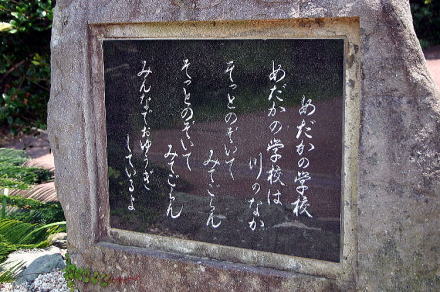 めだかの学校
めだかの学校は
川のなか
そっとのぞいて
みてごらん
そっとのぞいて
みてごらん
みんなでおゆうぎ
しているよ